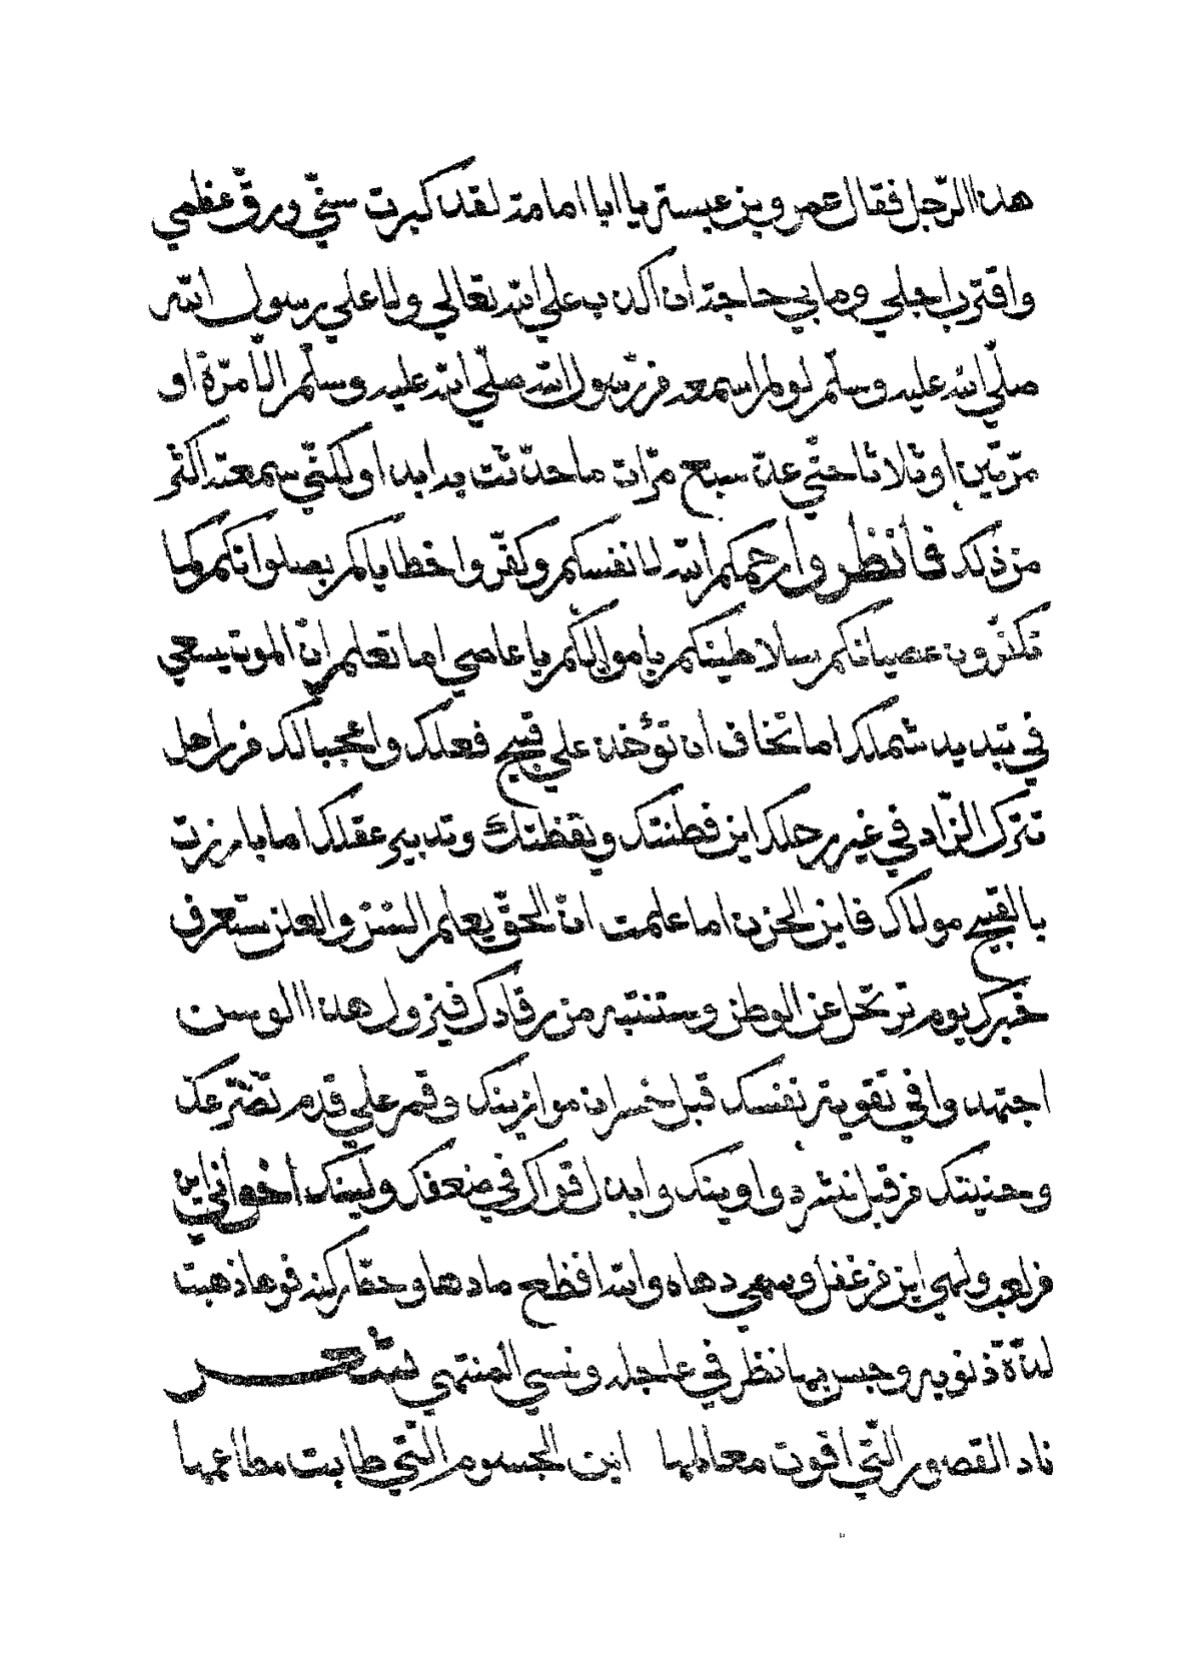 هذا الرّجل فقال عمرو بن عبسة يا ابا امامة لقد كبرت سنّي ورقّ عظمي
واقترب اجلي وما بي حاجة ان اكذب علي الله تعالي ولا علي رسول الله
صلّي الله عليه وسلّم لو لم اسمعه من رسول الله صلّي الله عليه وسلّم الّا مرّة او
مرّتين او ثلاثا حتّي عدّ سبع مرّات ما حدّثت به ابدا ولكنّي سمعته اكثر
من ذلك فانظروا رحمكم الله لانفسكم وكفّروا خطاياكم بصلواتكم وكما
تكفّرون عصيانكم سلاطينكم باموالكم يا عاصي اما تعلم انّ الموت يسعي
في تبديد شملك اما تخاف ان تؤخذ علي قبيح فعلك واعجبا لك من راحل
تترك الزّاد في غير رحلك اين فطنتك ويقظتك وتدبير عقلك اما بارزت
بالقبيح مولاك فاين الحزن اما علمت انّ الحقّ يعلم السّرّ والعلن ستعرف
خبرك يوم ترتحل عن الوطن وستنتبه من رقادك فيزول هذا الوسن
اجتهد وافي تقوية نفسك قبل خسران موازينك وقم علي قدم تضرّعك
وحنينك من قبل نشر دواوينك وابذل قواك في ضعفك ولينك اخواني اين
من لعب ولهي اين من غفل وسهي دهاه والله افظع ما دها وحقّا ركنه فوها ذهبت
لذّة ذنوبه وحبس بها نظر في عاجله ونسي المنتهي شعر
ناد القصور الّتي اقوت معالمها اين الجسوم الّتي طابت مطاعمها